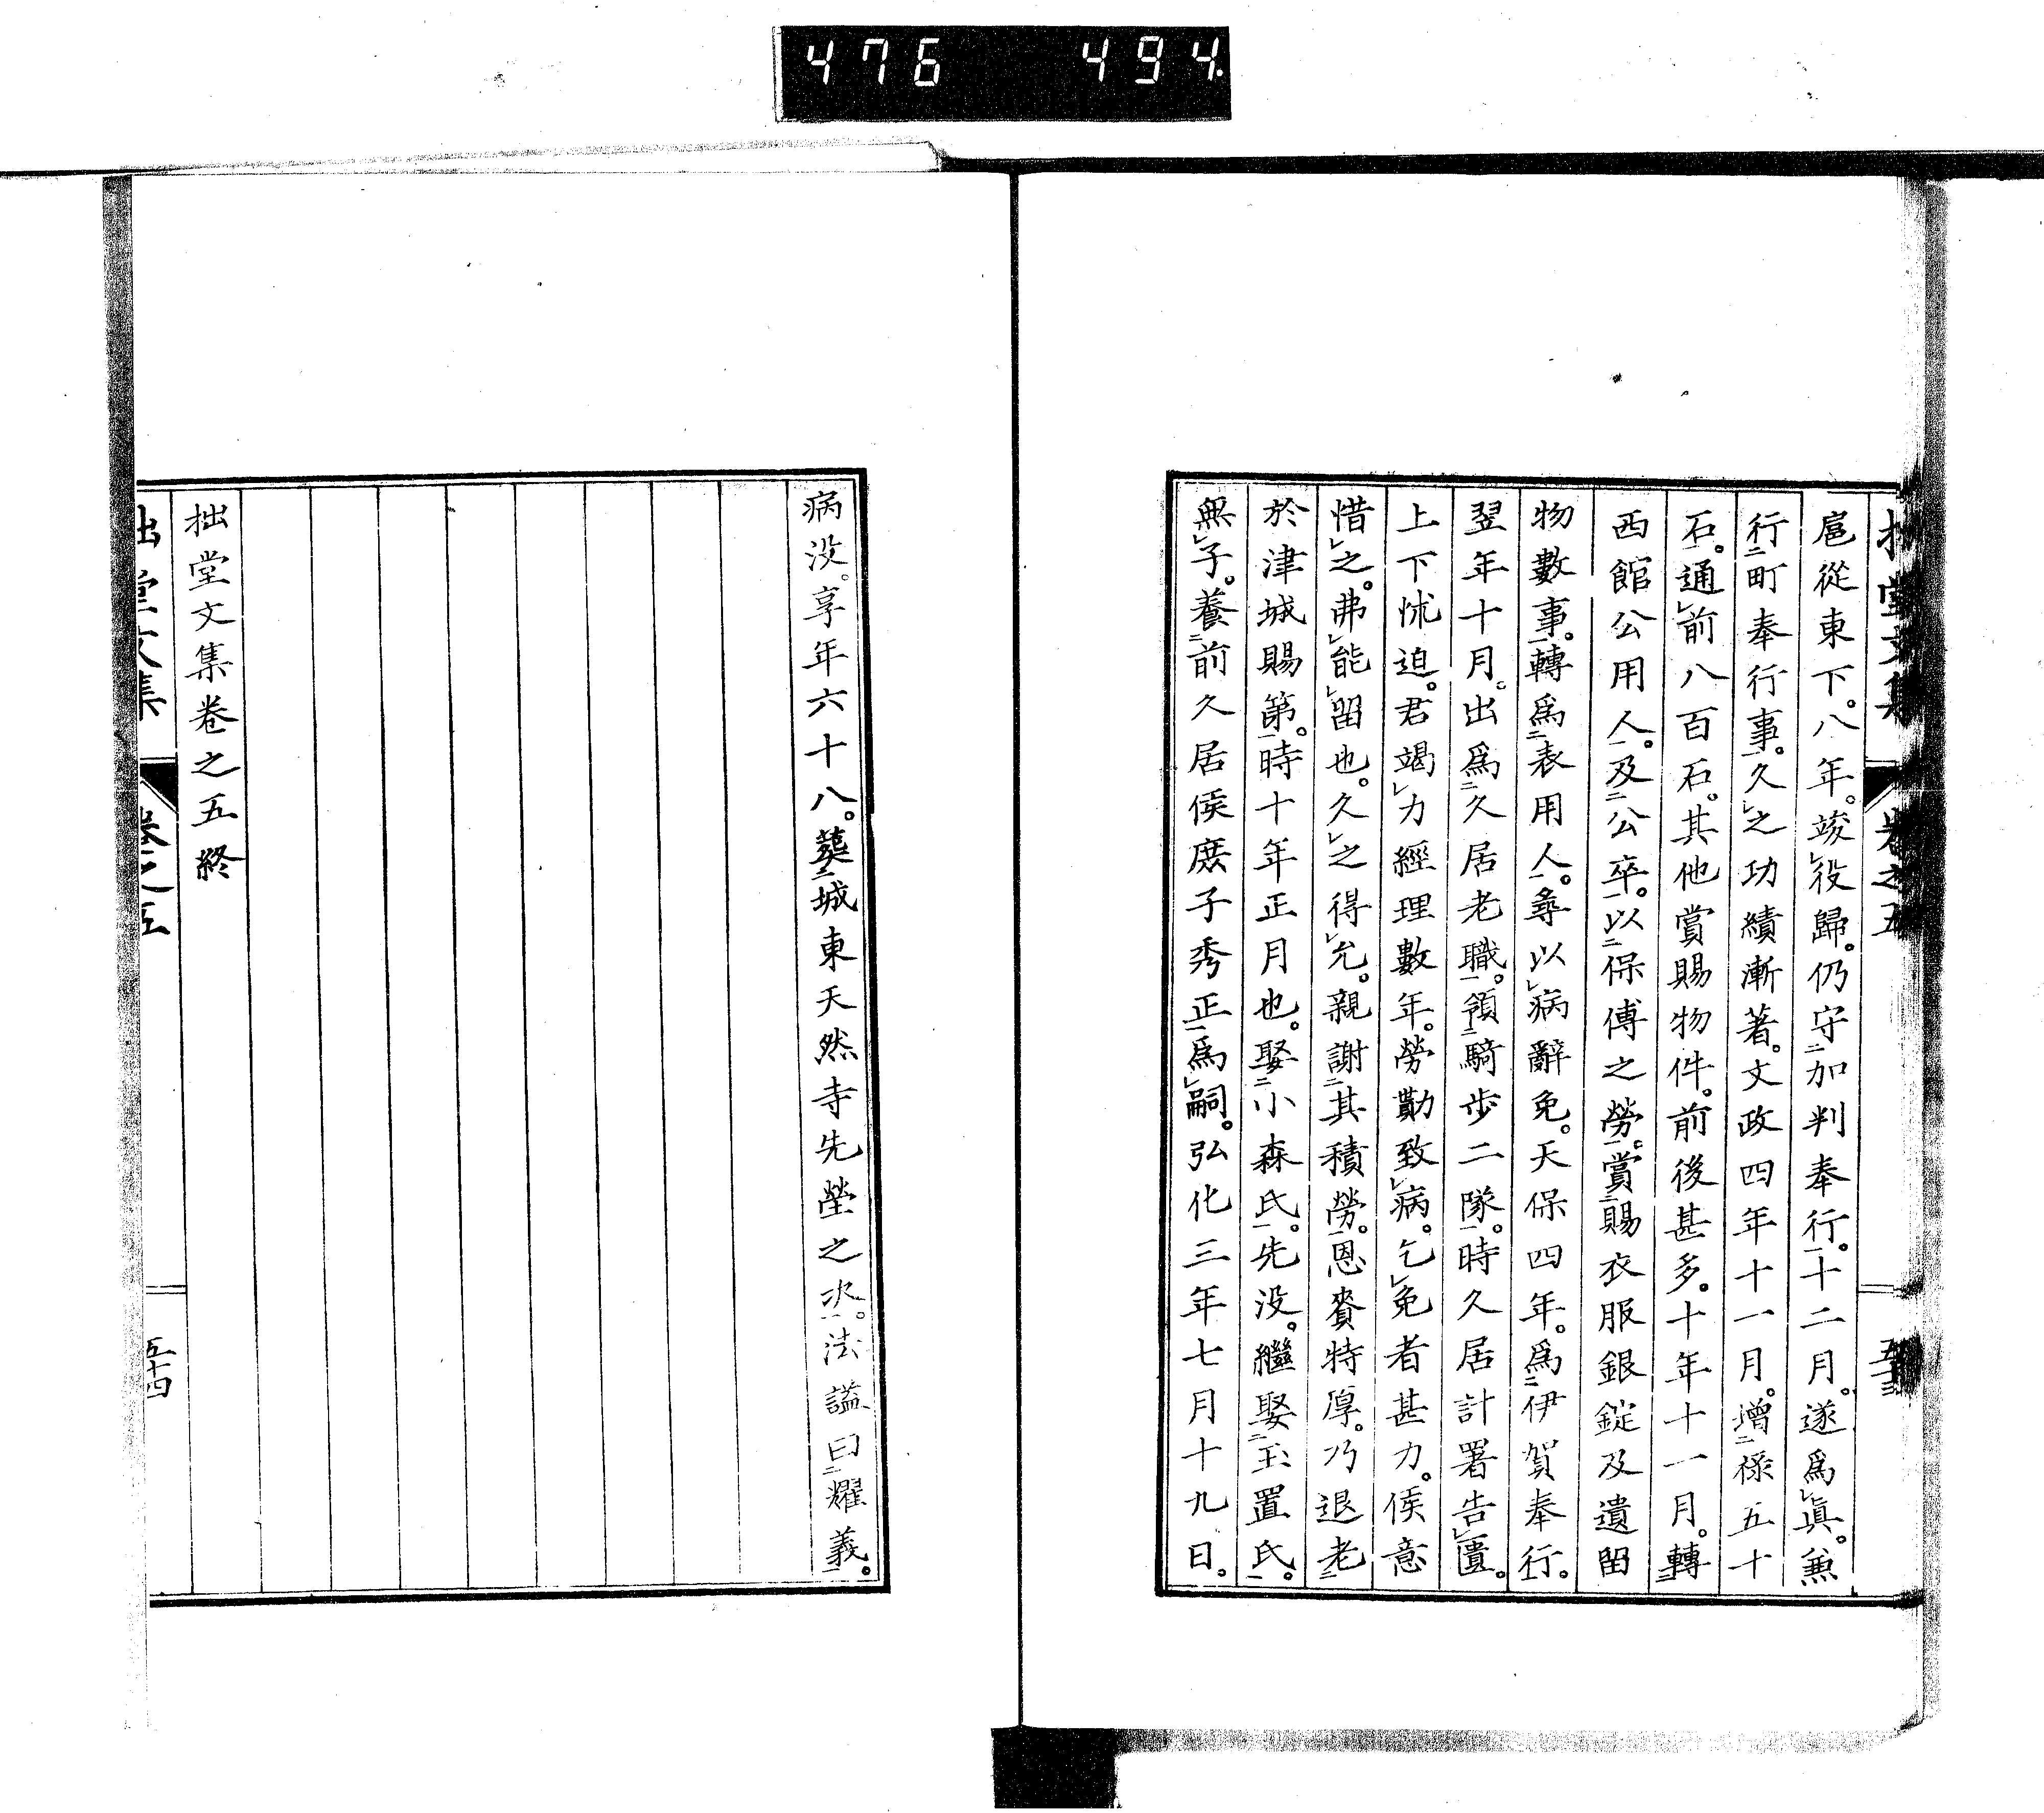 476 494
拙堂文集 卷之五
扈從東下。八年。竣㆑役歸。仍守㆓加判奉行㆒。十二月。遂爲㆑眞。兼
行㆓町奉行事㆒。久㆑之功績漸著。文政四年十一月。增㆓祿五十
石㆒。通㆑前八百石。其他賞賜物件。前後甚多。十年十一月。轉㆓
西館公用人㆒。及㆓公卒㆒。以㆓保傅之勞㆒。賞㆓賜衣服銀錠及遺留
物數事㆒。轉爲㆓表用人㆒。尋以㆑病辭免。天保四年。爲㆓伊賀奉行㆒。
翌年十月。出爲㆓久居老職㆒。領㆓騎步二隊㆒。時久居計署告㆑匱。
上下怵迫。君竭㆑力經理數年。勞勩致㆑病。乞㆑免者甚力。侯意
惜㆑之。弗㆑能㆑留也。久㆑之得㆑允。親謝㆓其積勞㆒。恩賚特厚。乃退㆓老
於津城賜第㆒。時十年正月也。娶㆓小森氏㆒。先没。繼娶㆓玉置氏㆒。
無㆑子。養㆓前久居侯庶子秀正㆒爲㆑嗣。弘化三年七月十九日。
病没。享年六十八。葬㆓城東天然寺先塋之次㆒。法謚曰㆓耀義㆒。
拙堂文集卷之五終
拙堂文集 卷之五 五十四